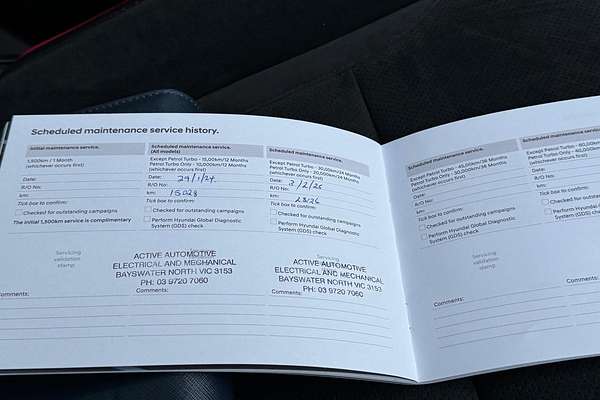 Scheduled maintenance service history.
Initial maintenance service.
1,500km / 1 Month
(whichever occurs first)
Date:
R/O No:
km:
Tick box to confirm:
Checked for outstanding campaigns
The initial 1,500km service is complimentary
Servicing
validation
stamp
Comments:
Scheduled maintenance service.
(All models)
Except Petrol Turbo - 15,000km/12 Months
Petrol Turbo Only - 10,000km/12 Months
(whichever occurs first)
Date: 29/1/24
R/O No:
km: 15028
Tick box to confirm:
Checked for outstanding campaigns
Perform Hyundai Global Diagnostic
System (GDS) check
ACTIVE AUTOMOTIVE
ELECTRICAL AND MECHANICAL
BAYSWATER NORTH VIC 3153
PH: 03 9720 7060
Comments:
Scheduled maintenance service.
Except Petrol Turbo - 30,000km/24 Months
Petrol Turbo Only - 20,000km/24 Months
(whichever occurs first)
Date: 3/2/25
R/O No:
km:
Tick box to confirm:
Checked for outstanding campaigns
Perform Hyundai Global Diagnostic
System (GDS) check
Servicing
ACTIVE AUTOMOTIVE
ELECTRICAL AND MECHANICAL
BAYSWATER NORTH VIC 3153
PH: 03 9720 7060
Comments:
Scheduled maintenance service.
Except Petrol Turbo - 45,000km/36 Months
Petrol Turbo Only - 30,000km/36 Months
(whichever occurs first)
Date:
R/O No:
km:
Tick box to confirm:
Checked for outstanding campaigns
Perform Hyundai Global Diagnostic
System (GDS) check
Servicing
validation
stamp
Comments:
Scheduled maintenance
Except Petrol Turbo
Petrol Turbo Only
(whichever occurs first)
Date:
R/O No:
km:
Tick box to confirm:
Checked for
Perform Hyundai
System (GDS)